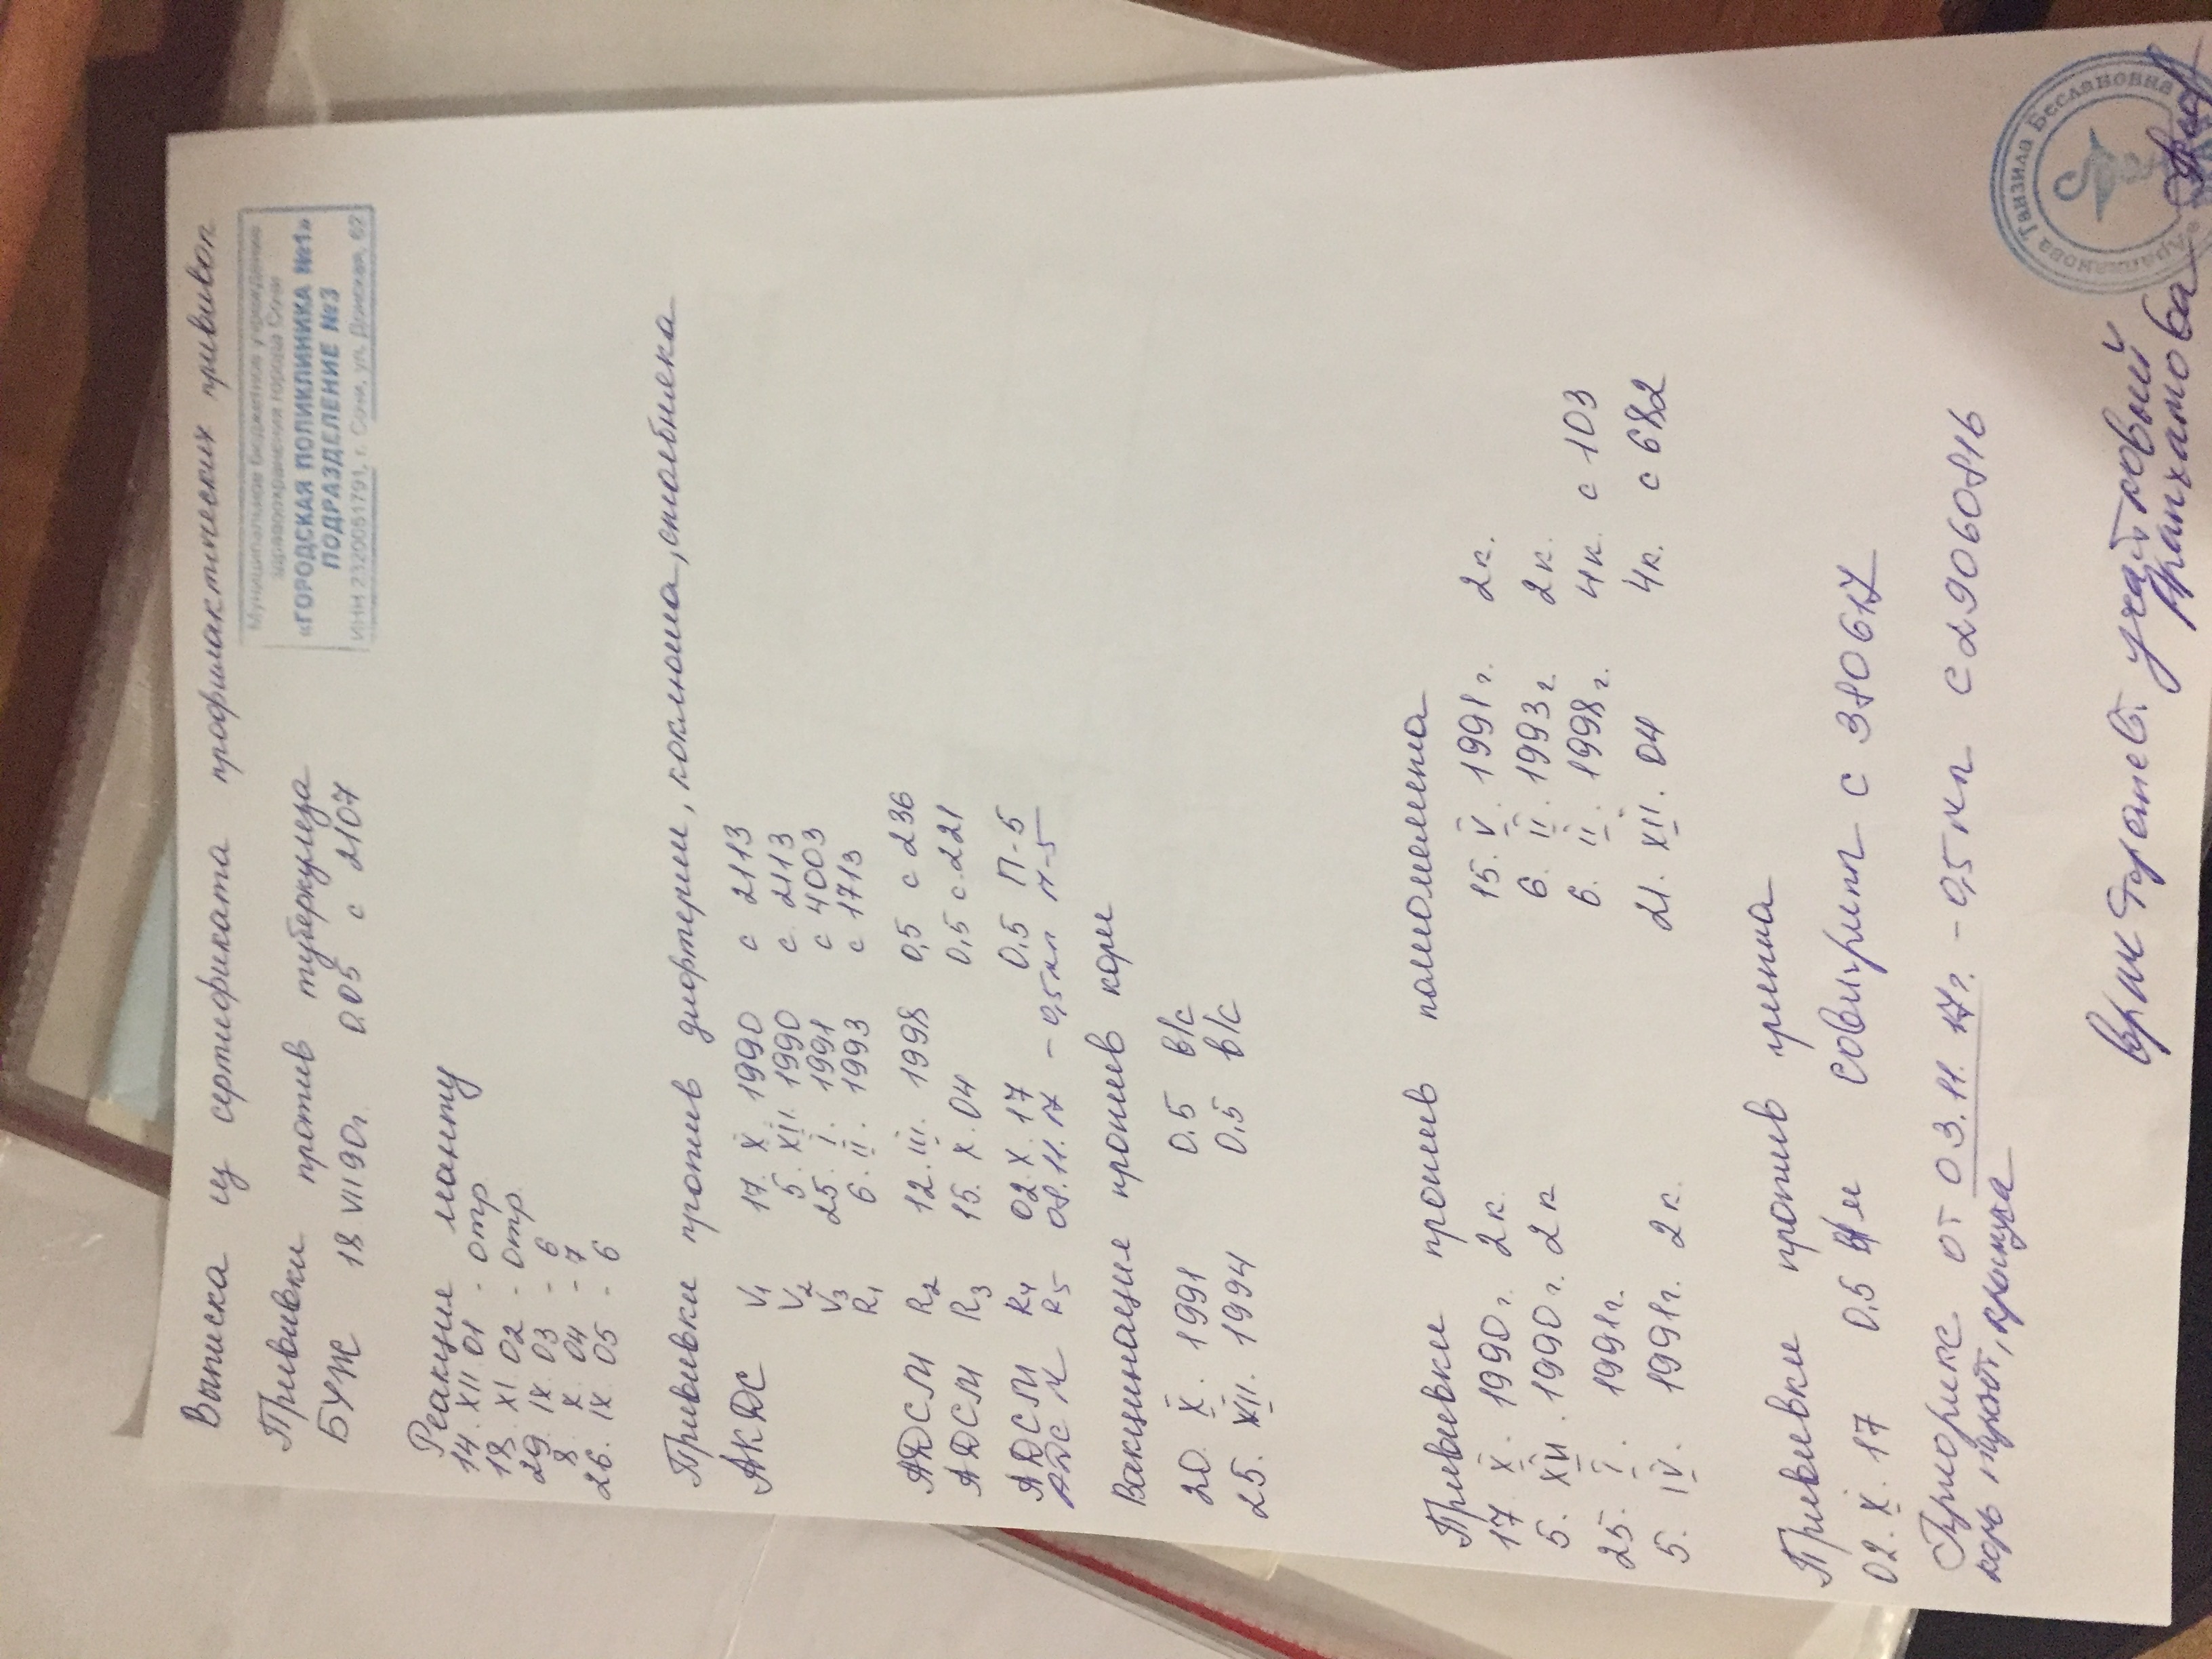 Выписка из сертификата профилактических прививок
Муниципальное бюджетное учреждение
здравоохранения города Сочи
«ГОРОДСКАЯ ПОЛИКЛИНИКА №1»
ПОДРАЗДЕЛЕНИЕ №3
ИНН 2320051791, г. Сочи, ул. Донская, 62
Прививки против туберкулеза
БУЖ 18 VII 90г. 0.05 с 2107
Реакция манту
14. XII 01 - отр.
18. XI 02 - отр.
29. IX. 03 - 6
8. X. 04 - 7
26. IX 05 - 6
Прививки против дифтерии, коклюша, столбняка
АКДС V1 17. X 1990 с 2113
V2 5. XII. 1990 с. 2113
V3 25. I. 1991 с 4003
R1 6. II. 1993 с 1713
АДСМ R2 12. III. 1998 0,5 с 236
АДСМ R3 15. X. 04 0,5 с.221
АДСМ R4 02. X. 17 0.5 П-5
АДС М R5 08.11.17 - 0,5 мл П-5
Вакцинация против кори
20. X. 1991 0.5 в/с
25. XII. 1994 0,5 в/с
Прививки против полиомиелита
17 X. 1990 г. 2 к. 15. V. 1991 г. 2 к.
5. XII. 1990 г. 2 к 6. II. 1993 г. 2 к.
25. I. 1991 г. 6. II. 1998 г. 4 к. с 103
5. IV. 1991г. 2 к. 21. XII. 04 4 к. с 682
Прививки против гриппа
02. X. 17 0.5 в/м Совигрипп с 380617
Приорикс от 03.11.17г. - 0,5 мл с 29060816
корь паротит, краснуха
врач терапевт участковый
Арапханова
Арапханова Танзила Беслановна